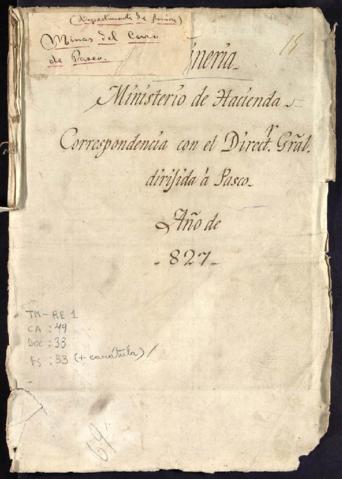 (Departamento de Junín)
Minas del Cerro
de Pasco.
15
inería
Ministerio de Hacienda
Correspondencia con el Direct.r Gral.
dirijida á Pasco.
Año de
- 827 -
TM-RE 1
CA : 49
DOC : 33
FS : 33 (+ carátula)